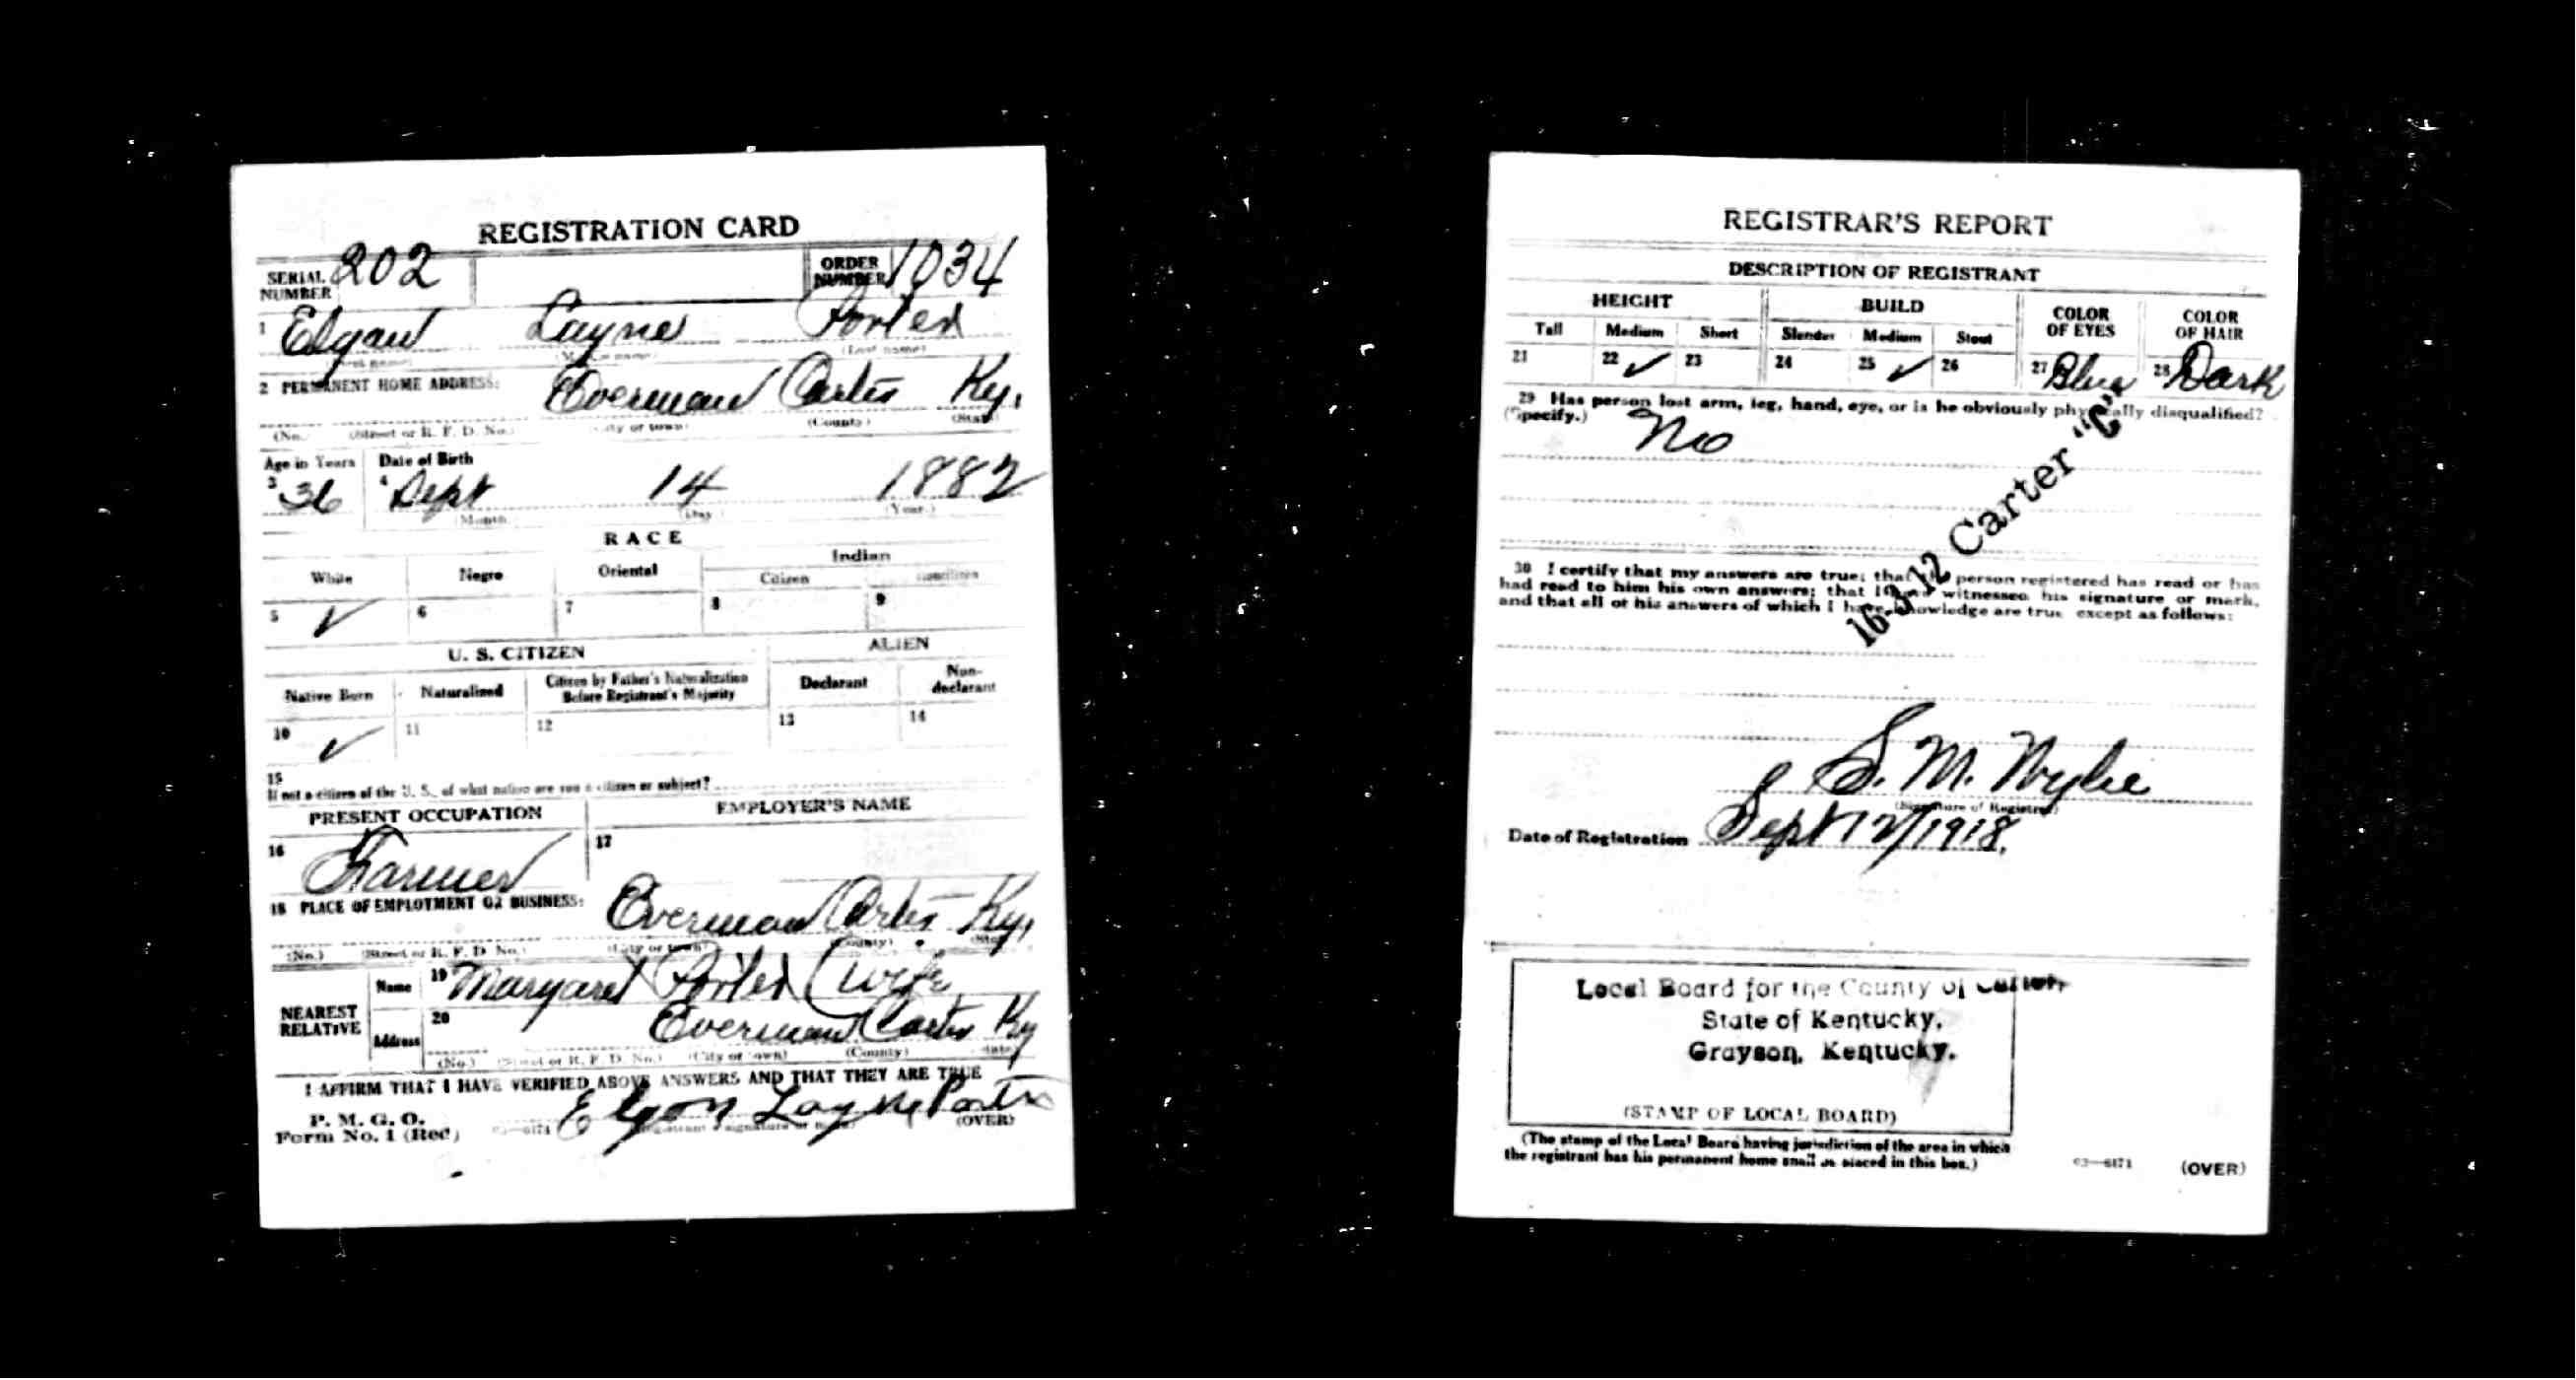 REGISTRATION CARD
SERIAL NUMBER 202 ORDER NUMBER 1034
1 Elgan Layne Porter
(Last name)
2 PERMANENT HOME ADDRESS: Everman Carter Ky.
(No.) (Street or R. F. D. No.) (City or town) (County) (State)
Age in Years Date of Birth
3 36 4 Sept 14 1882
(Month) (Day) (Year.)
RACE
White Negro Oriental Indian
Citizen Noncitizen
5 ✓ 6 7 8 9
U. S. CITIZEN ALIEN
Native Born Naturalized Citizen by Father's Naturalization Before Registrant's Majority Declarant Non-declarant
10 ✓ 11 12 13 14
15
If not a citizen of the U. S., of what nation are you a citizen or subject?
PRESENT OCCUPATION EMPLOYER'S NAME
16 Farmer 17
18 PLACE OF EMPLOYMENT OR BUSINESS: Everman Carter Ky.
(No.) (Street or R. F. D. No.) (City or town) (County) (State)
NEAREST RELATIVE Name 19 Margaret Porter (wife
Address 20 Everman Carter Ky
(No.) (Street or R. F. D. No.) (City or town) (County) (State)
I AFFIRM THAT I HAVE VERIFIED ABOVE ANSWERS AND THAT THEY ARE TRUE
P. M. G. O.
Form No. 1 (Red) 03—6171 Elgon Layne Porter
(Registrant's signature or mark) (OVER)
REGISTRAR'S REPORT
DESCRIPTION OF REGISTRANT
HEIGHT BUILD COLOR OF EYES COLOR OF HAIR
Tall Medium Short Slender Medium Stout
21 22 ✓ 23 24 25 ✓ 26 27 Blue 28 Dark
29 Has person lost arm, leg, hand, eye, or is he obviously physically disqualified?
(Specify.) No
16-3-12 Carter "C"
30 I certify that my answers are true; that the person registered has read or has
had read to him his own answers; that I have witnessed his signature or mark,
and that all of his answers of which I have knowledge are true except as follows:
S. M. Wylie
(Signature of Registrar)
Date of Registration Sept 12/1918.
Local Board for the County of Carter,
State of Kentucky,
Grayson, Kentucky.
(STAMP OF LOCAL BOARD)
(The stamp of the Local Board having jurisdiction of the area in which
the registrant has his permanent home shall be placed in this box.)
03—6171 (OVER)